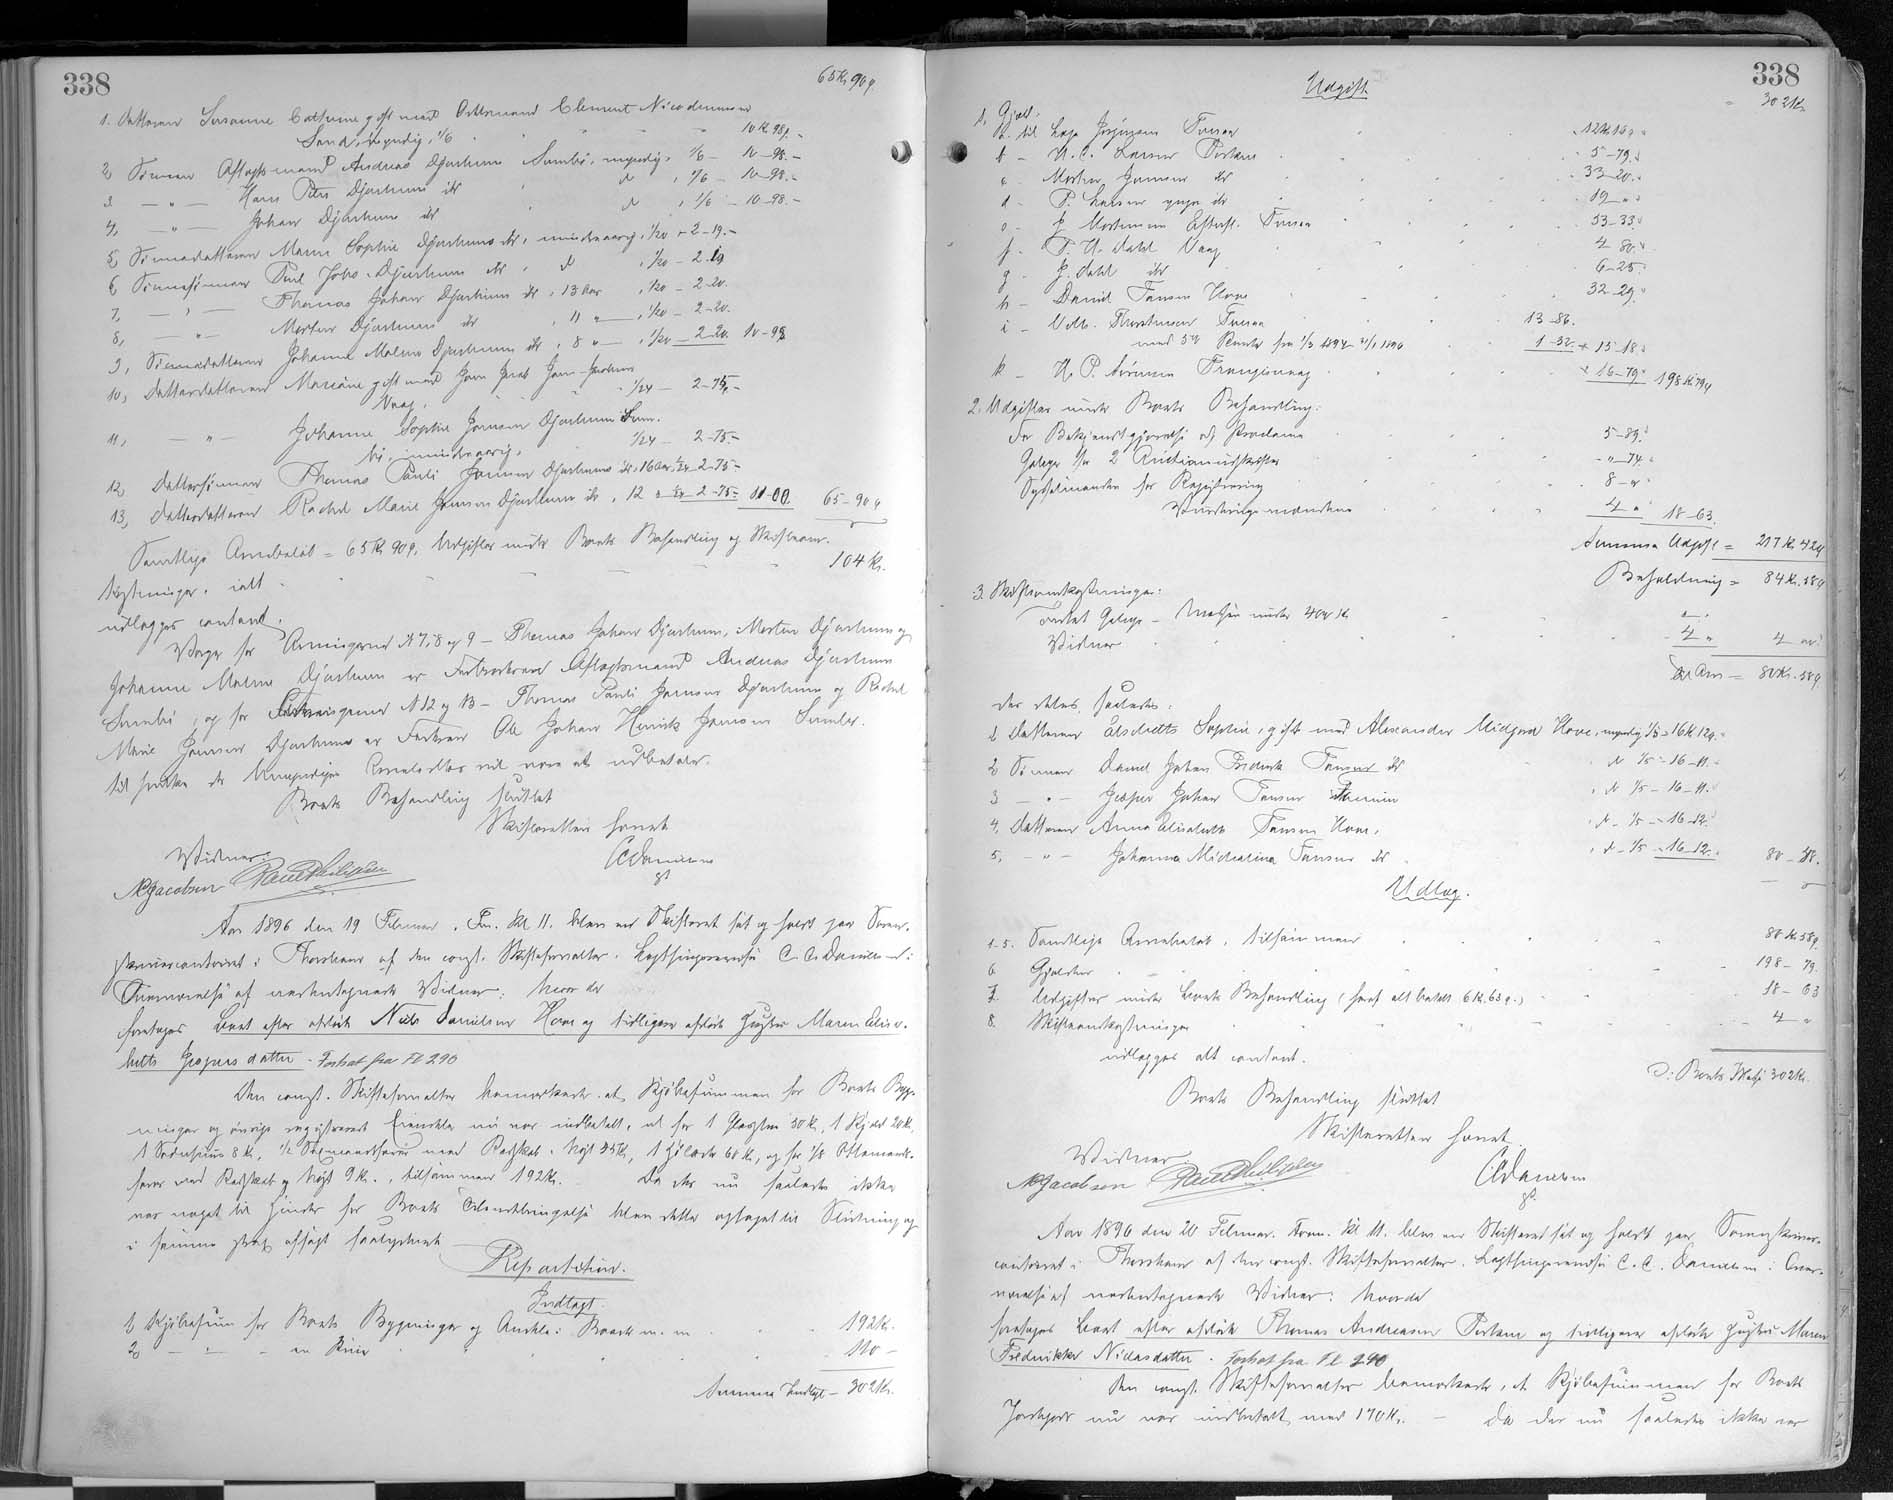 338
65 Kr 90 ø.
1. Datteren Susanne Cathrine gift med Ottemand Clement Nicodemusen
Sand, myndig, 1/6 10 Kr. 98 ø. -
2, Sønnen Aftægtsmand Andreas Djurhuus Sumbø, myndig, 1/6 - 10-98. -
3 - " - Hans Peter Djurhuus ibd. d , 1/6 - 10-98. -
4, - " - Johan Djurhuus ibd. d , 1/6 - 10-98. -
5, Sønnedatteren Maren Sophie Djurhuus ibd., mindreaarig, 1/20 - 2-19. -
6, Sønnesønnen Poul Johs. Djurhuus ibd. , d , 1/20 - 2-19
7, - " - Thomas Johan Djurhuus ibd. , 13 Aar , 1/20 - 2-20.
8, - " - Morten Djurhuus ibd. , 11 " , 1/20 - 2-20.
9, Sønnedatteren Johanne Malene Djurhuus ibd. , 8 " , 1/20 - 2-20. 10-98
10, Datterdatteren Mariane gift med Joen Jacob Joen-Jacobsen
Vaag. 1/24 - 2-75. -
11, - " - Johanne Sophie Jensen Djurhuus Sum-
bø, mindreaarig, 1/24 - 2-75. -
12, Dattersønnen Thomas Pauli Jensen Djurhuus ibd., 16 Aar, 1/24 2-75 -
13, Datterdatteren Rachel Marie Jensen Djurhuus ibd., 12 " 1/24 2-75 - 11-00 65-90 ø
Samtlige Arvebeløb = 65 Kr 90 ø, Udgifter under Boets Behandling og Skifteom-
kostninger, ialt 104 Kr.
udlægges contant.
Værge for Arvingerne N 7, 8 og 9 - Thomas Johan Djurhuus, Morten Djurhuus og
Johanne Malene Djurhuus er Farbroderen Aftægtsmand Andreas Djurhuus
Sumbø, og for Arvingerne N 12 og 13 - Thomas Pauli Jensen Djurhuus og Rachel
Marie Jensen Djurhuus er Faderen Ole Johan Henrik Jensen Sumbø.
til hvilke de Umyndiges Arvelodder vil være at udbetale.
Boets Behandling sluttet
Skifteretten hævet
Vidner: CCDanielsen
NJacobsen Poul Philipsen gst
Aar 1896 den 19 Februar, Fm. Kl 11. blev en Skifteret sat og holdt paa Soren-
skrivercontoiret i Thorshavn af den const. Skifteforvalter, Lagthingsrevisor C. C. Danielsen i
Overværelse af undertegnede Vidner; hvor da
foretoges Boet efter afdøde Niels Danielsen Hove og tidligere afdøde Hustru Maren Elisa-
beth Jespersdatter. Fortsat fra Fl 290
Den const. Skifteforvalter bemærkede, at Kjøbesummen for Boets Byg-
ninger og øvrige registrerede Eiendele nu var indbetalt, nl for 1 Glasstue 30 Kr, 1 Kjeld 20 Kr,
1 Sodnhuus 8 Kr, 1/2 Sexmandsfarer med Redskab, Nøst 35 Kr, 1 Hjælder 60 Kr, og for 1/8 Ottemands-
farer med Redskab og Nøst 9 Kr., tilsammen 192 Kr. Da der nu saaledes ikke
var noget til Hinder for Boets Tilendebringelse blev dette optaget til Slutning og
i samme strax afsagt saalydende
Repartition.
Indtægt.
1, Kjøbesum for Boets Bygninger og Andele i Baade m. m. 192 Kr.
2, - " - en Kue 110 -
Summa Indtægt - 302 Kr.
338
Udgift
302 Kr.
1, Gjæld.
a. til Enke Jespersen Famien 12 Kr 16 ø. "
b - N. C. Larsen Porkere 5-79. "
c - Morten Jensen ibd. 33-20. "
d - P. Larsen ynge ibd. 19 "
e - J. Mortensens Efterf. Famien 53-33 "
f - T. N. Dahl Vaag 4-80. "
g - J. Dahl ibd. 6-25. "
h - Daniel Tausen Hove 32-29. "
i - Vilh. Thorsteinsson Famien 13-86.
med 5% Renter fra 1/3 1894 - 31/1 1896 1-32. 15-18 "
k - H. P. Sørensen Frangisvaag 16-79. 198 Kr 79 ø
2. Udgifter under Boets Behandling:
For Bekjendtgjørelse af Proclama 5-89. "
Gebyr for 2 Auctionsudskrifter - " 74. "
Sysselmanden for Registrering 8 - " "
Vurderingsmændene 4 " 18-63
Summa Udgift = 217 Kr 42 ø
Beholdning = 84 Kr. 58 ø
3. Skifteomkostninger:
Forlods Gebyr - Massen under 400 Kr - "
Vidner 4 " 4 "
Til Arv = 80 Kr. 58 ø
der deles saaledes:
1 Datteren Elisabeth Sophie, gift med Alexander Midjord Hove, myndig 1/5 = 16 Kr 12 ø. -
2 Sønnen Daniel Johan Frederik Tausen ibd. , d 1/5 - 16-11. -
3 - " - Jesper Johan Tausen Famien , d 1/5 - 16-11. "
4, Datteren Anna Elisabeth Tausen Hove, , d - 1/5 - 16-12. "
5, - " - Johanna Michaeline Tausen ibd , d - 1/5 - 16-12. 80-58.
Udlæg.
1-5. Samtlige Arvebeløb, tilsammen 80 Kr 58 ø.
6. Gjælden 198 - 79.
7. Udgifter under Boets Behandling (heraf alt betalt 6 Kr. 63 ø.) 18 - 63
8. Skifteomkostninger 4 "
udlægges alt contant.
D: Boets Masse 302 Kr.
Boets Behandling sluttet
Skifteretten hævet.
Vidner
NJacobsen Poul Philipsen CCDanielsen
gst.
Aar 1896 den 20 Februar. Form. Kl. 11. blev en Skifteret sat og holdt paa Sorenskriver-
contoiret i Thorshavn af den const. Skifteforvalter, Lagthingsrevisor C. C. Danielsen i Over-
værelse af undertegnede Vidner; hvor da
foretoges Boet efter afdøde Thomas Andreasen Porkere og tidligere afdøde Hustru Maren
Frederikke Niclasdatter. Fortsat fra Fl 290
Den const. Skifteforvalter bemærkede, at Kjøbesummen for Boets
Jordgods nu var indbetalt med 170 Kr. - Da der nu saaledes ikke var